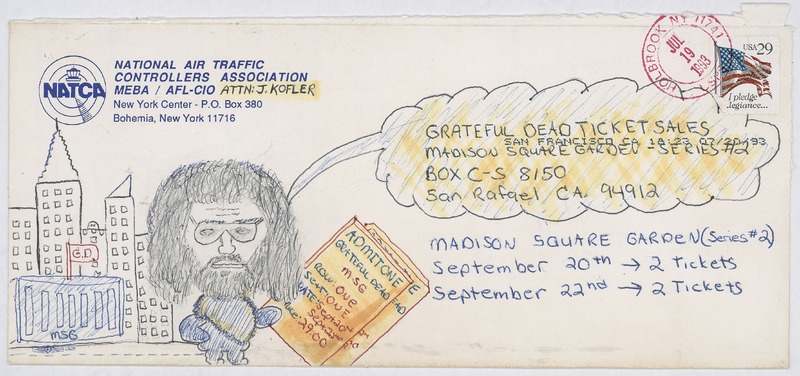 NATCA
NATIONAL AIR TRAFFIC
CONTROLLERS ASSOCIATION
MEBA / AFL-CIO ATTN: J. KOFLER
New York Center - P.O. Box 380
Bohemia, New York 11716
HOLBROOK NY 11741
JUL
19
1993
USA 29
I pledge
allegiance...
GRATEFUL DEAD TICKET SALES
SAN FRANCISCO CA 18:23 07/20/93
MADISON SQUARE GARDEN - SERIES #2
BOX C-S 8150
San Rafael CA. 94912
MADISON SQUARE GARDEN (Series #2)
September 20th → 2 Tickets
September 22nd → 2 Tickets
G.D
MSG
ADMIT ONE
GRATEFUL DEAD
MSG
ROW: ONE
SEAT: ONE
DATE: Sept 20th
Sept 22nd
29.00